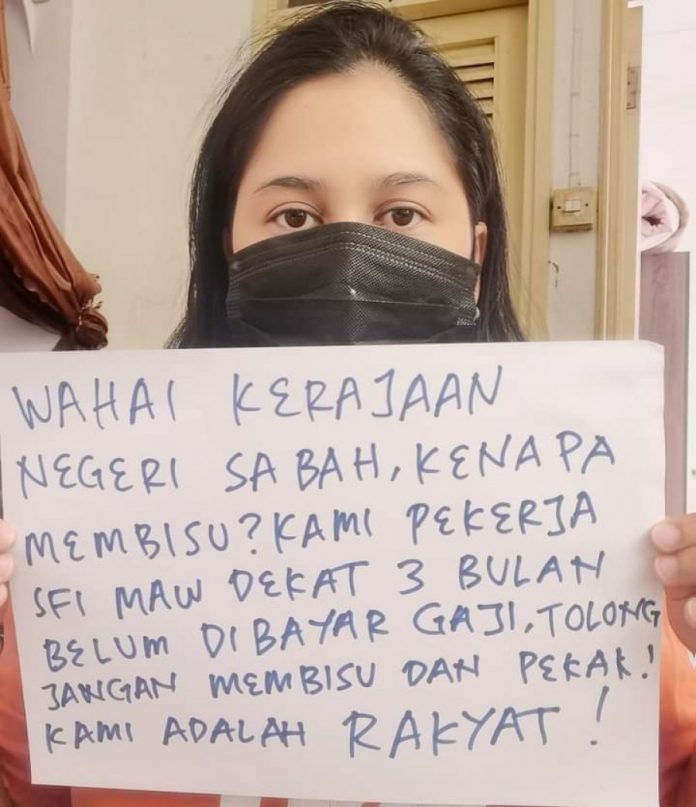 WAHAI KERAJAAN
NEGERI SABAH, KENAPA
MEMBISU? KAMI PEKERJA
SFI MAW DEKAT 3 BULAN
BELUM DIBAYAR GAJI, TOLONG
JANGAN MEMBISU DAN PEKAK!
KAMI ADALAH RAKYAT!